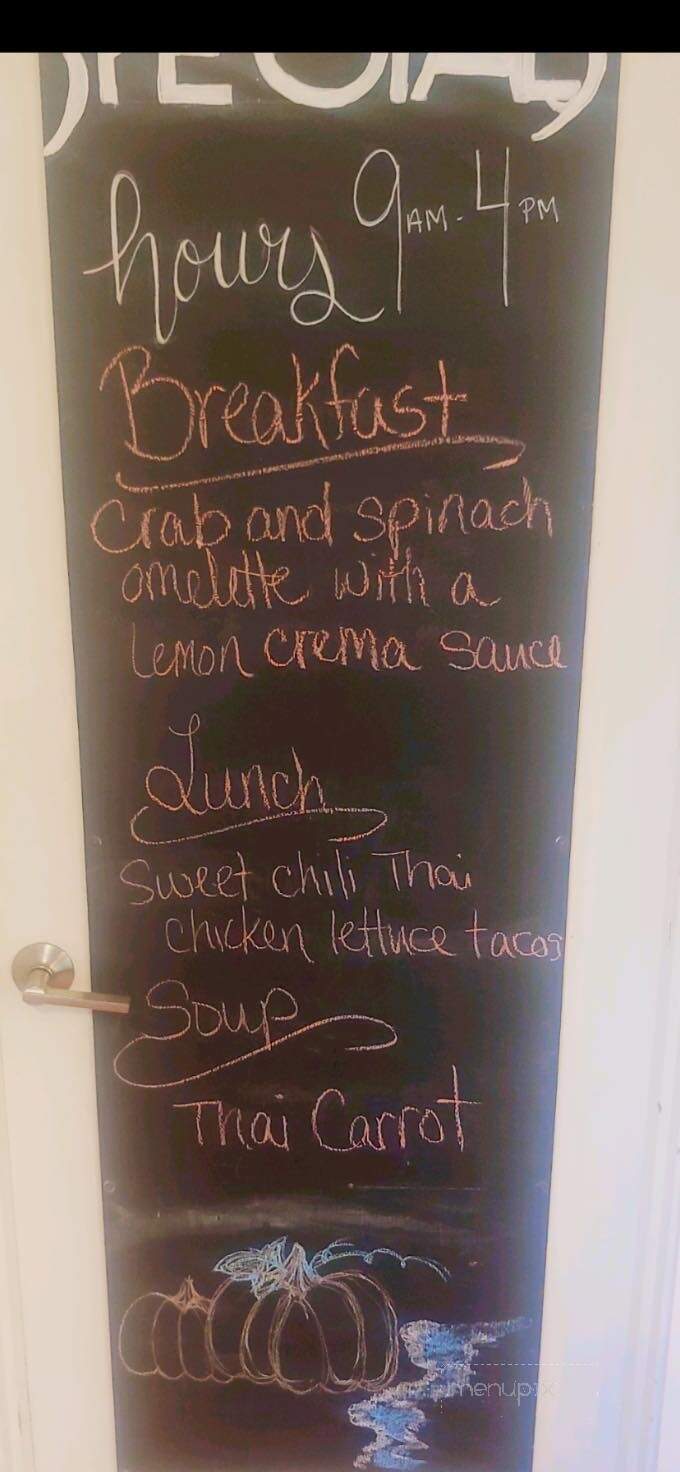 SPECIALS
hours 9AM-4PM
Breakfast
Crab and spinach
omelette with a
Lemon crema sauce
Lunch
Sweet chili Thai
chicken lettuce tacos
Soup
Thai Carrot
menupix